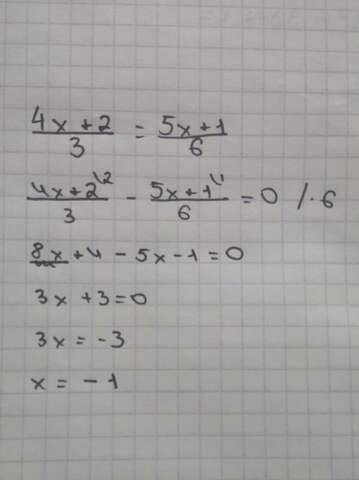 4x+2/3 = 5x+1/6
4x+2\2/3 - 5x+1\1/6 = 0 /·6
8x+4-5x-1=0
3x+3=0
3x=-3
x=-1